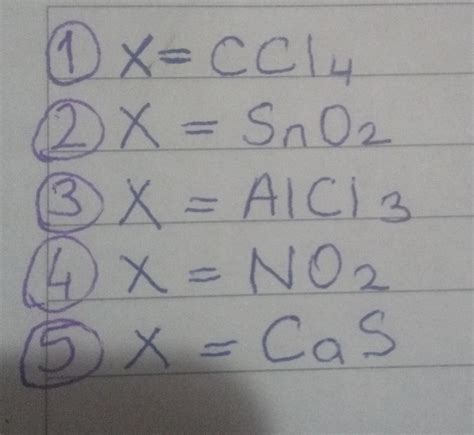 ① X = CCl4
② X = SnO2
③ X = AlCl3
④ X = NO2
⑤ X = CaS